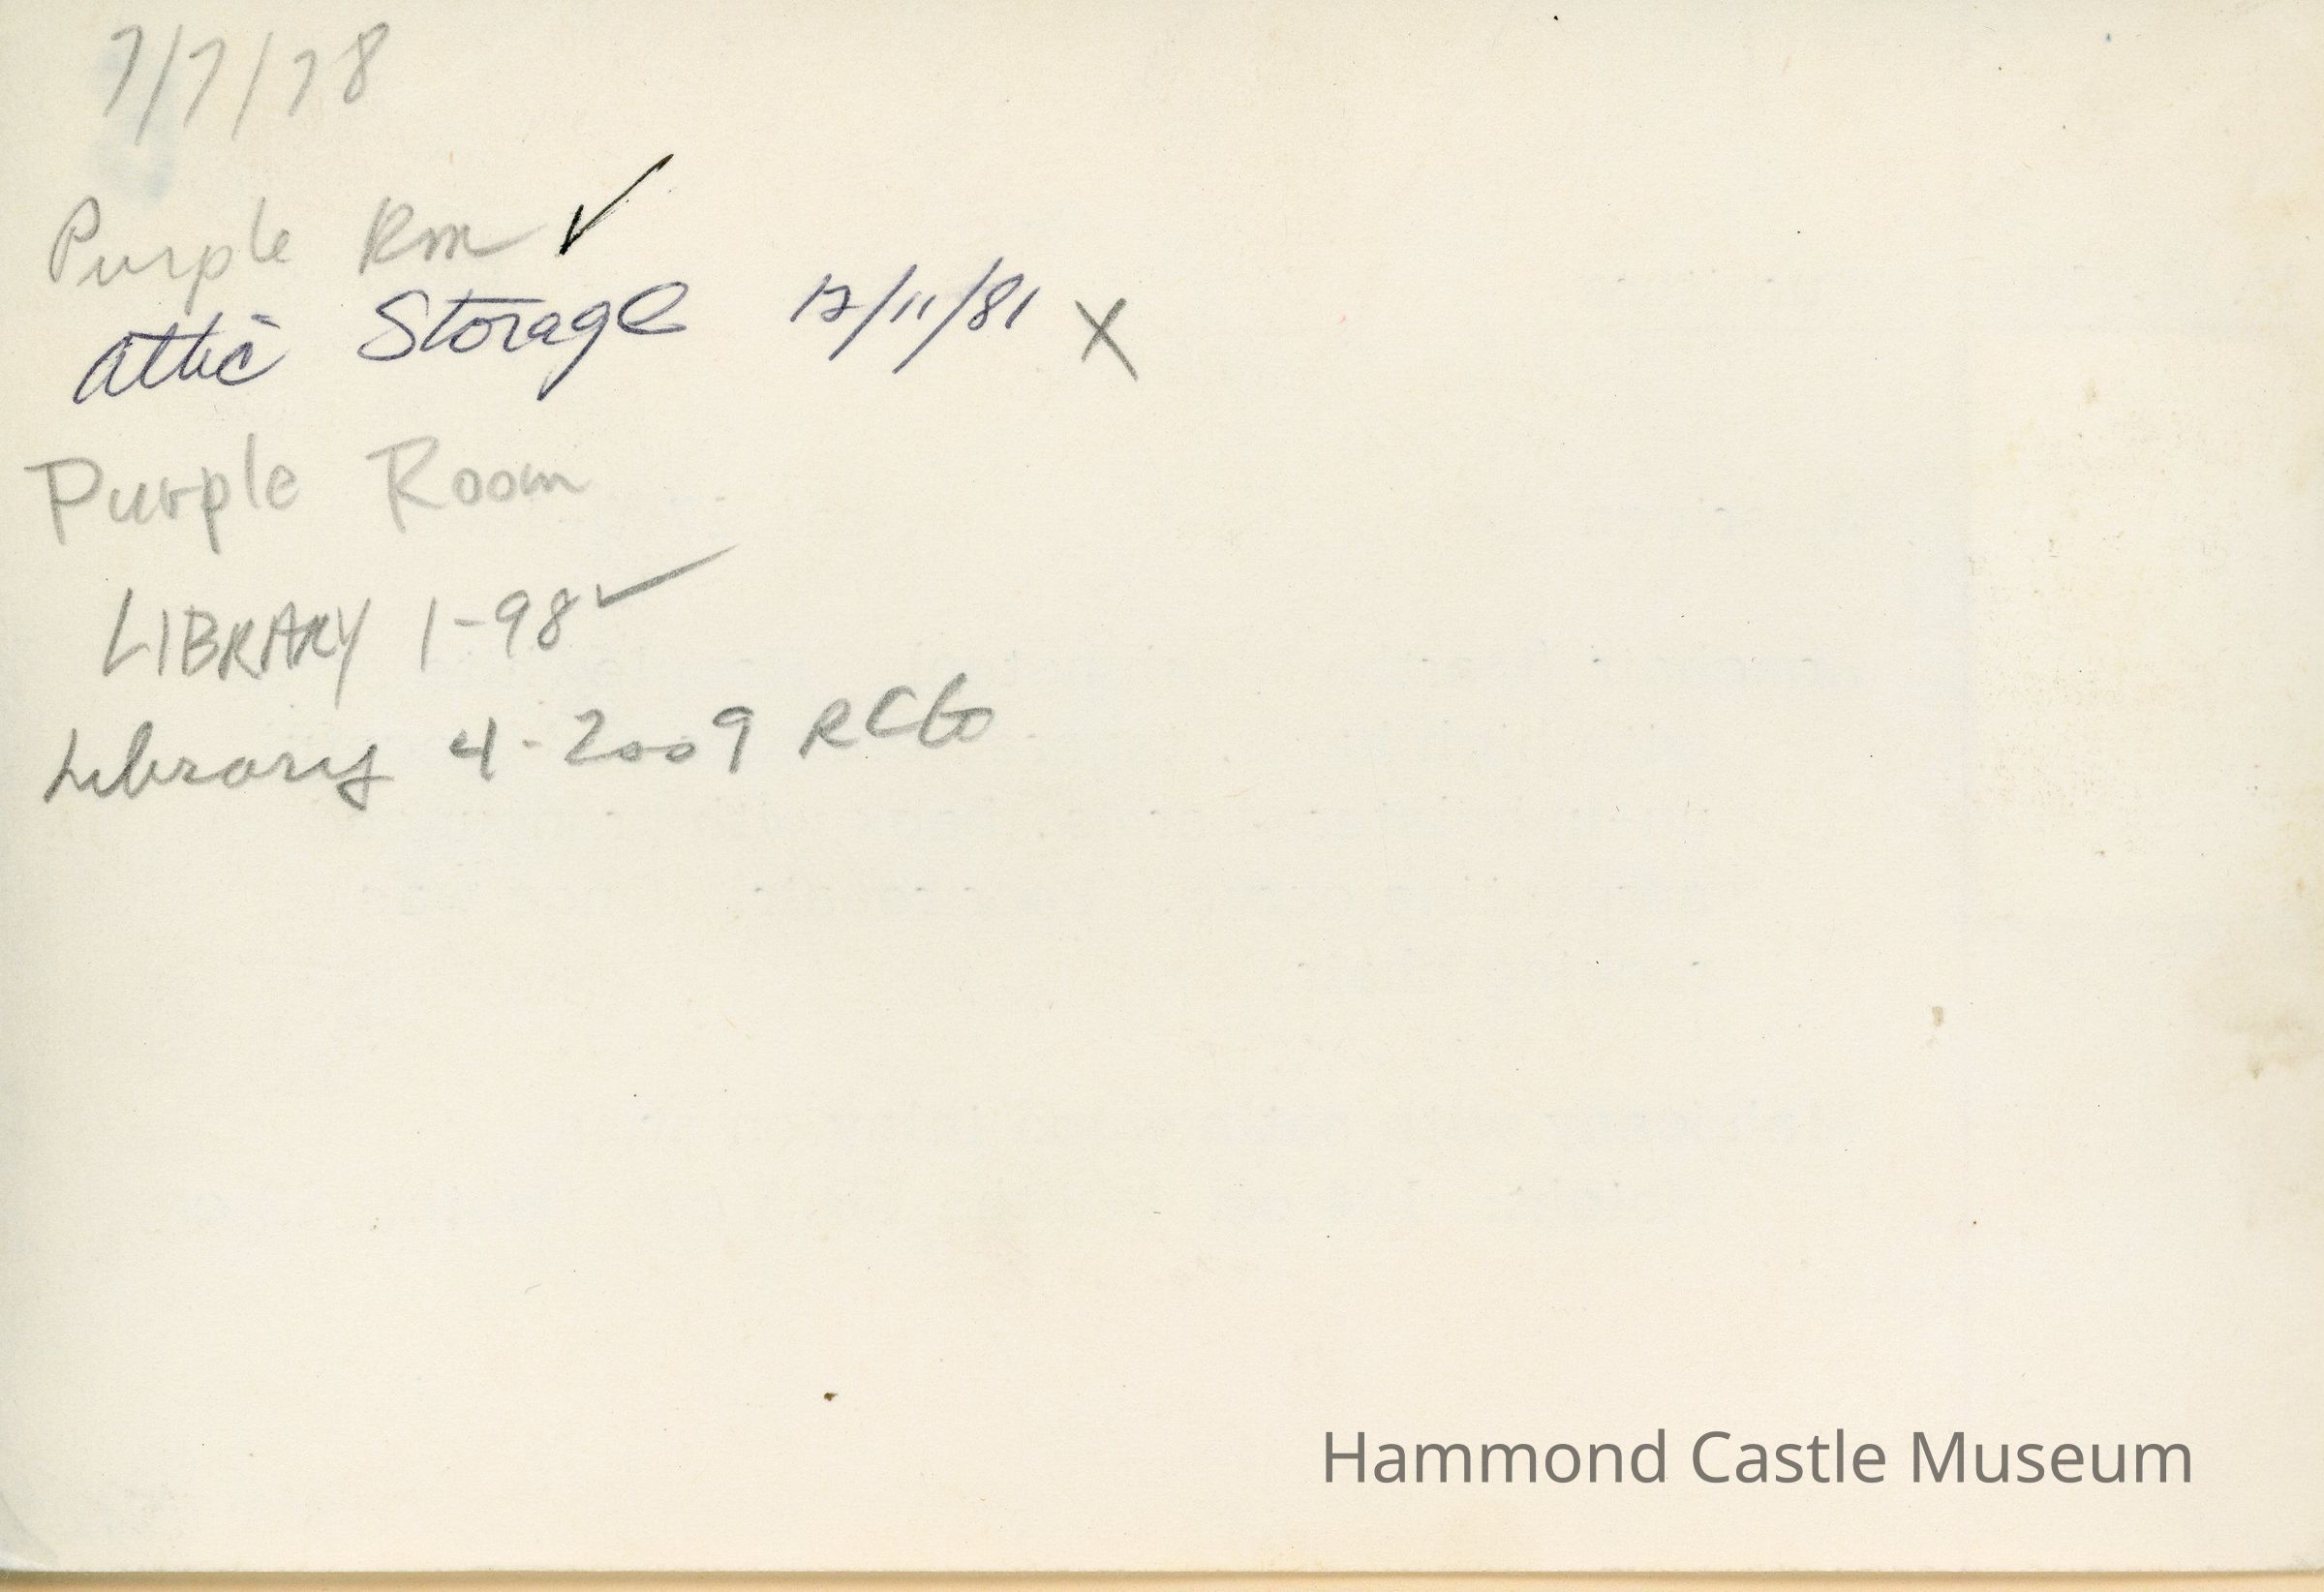 7/7/78
Purple Rm ✓
Attic Storage 12/11/81 X
Purple Room
LIBRARY 1-98 ✓
Library 4-2009 RCG
Hammond Castle Museum